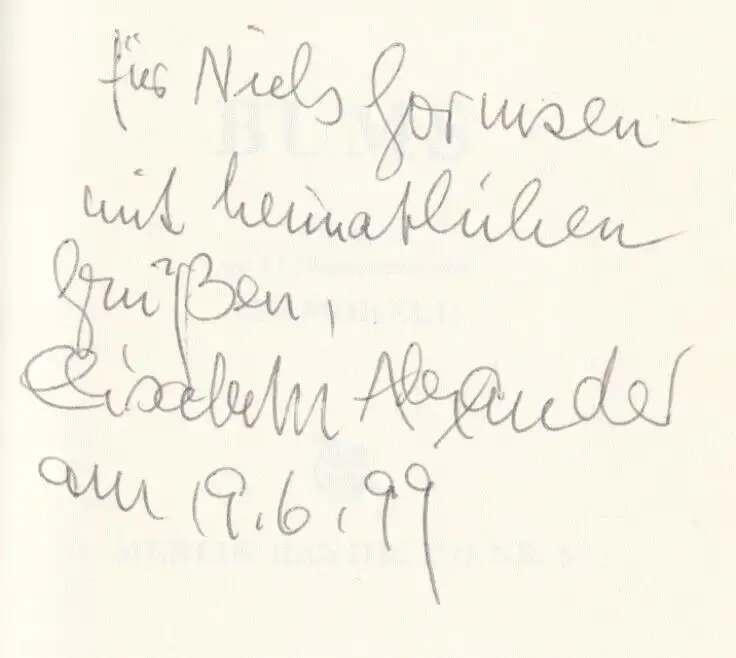 für Niels Gormsen –
mit heimatlichen
Grüßen,
Elisabeth Alexander
am 19.6.99
BUMS
MERLIN HANDBUCH NR. 3